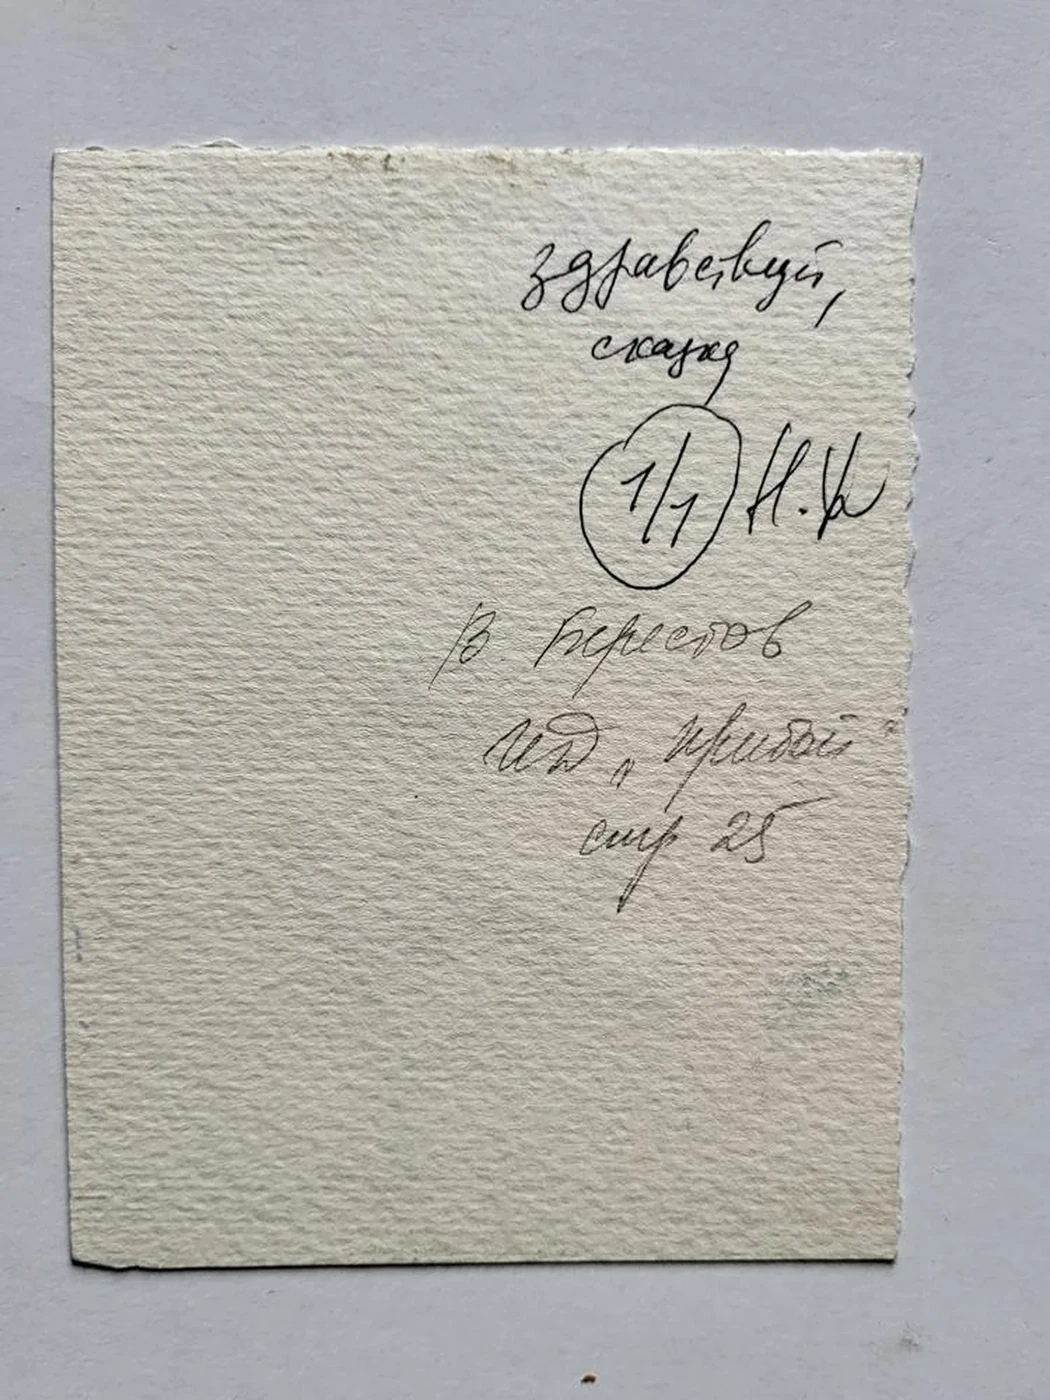 здравствуй,
сказка
1/1 Н.
В. Берестов
ИД „Прибой"
стр 25